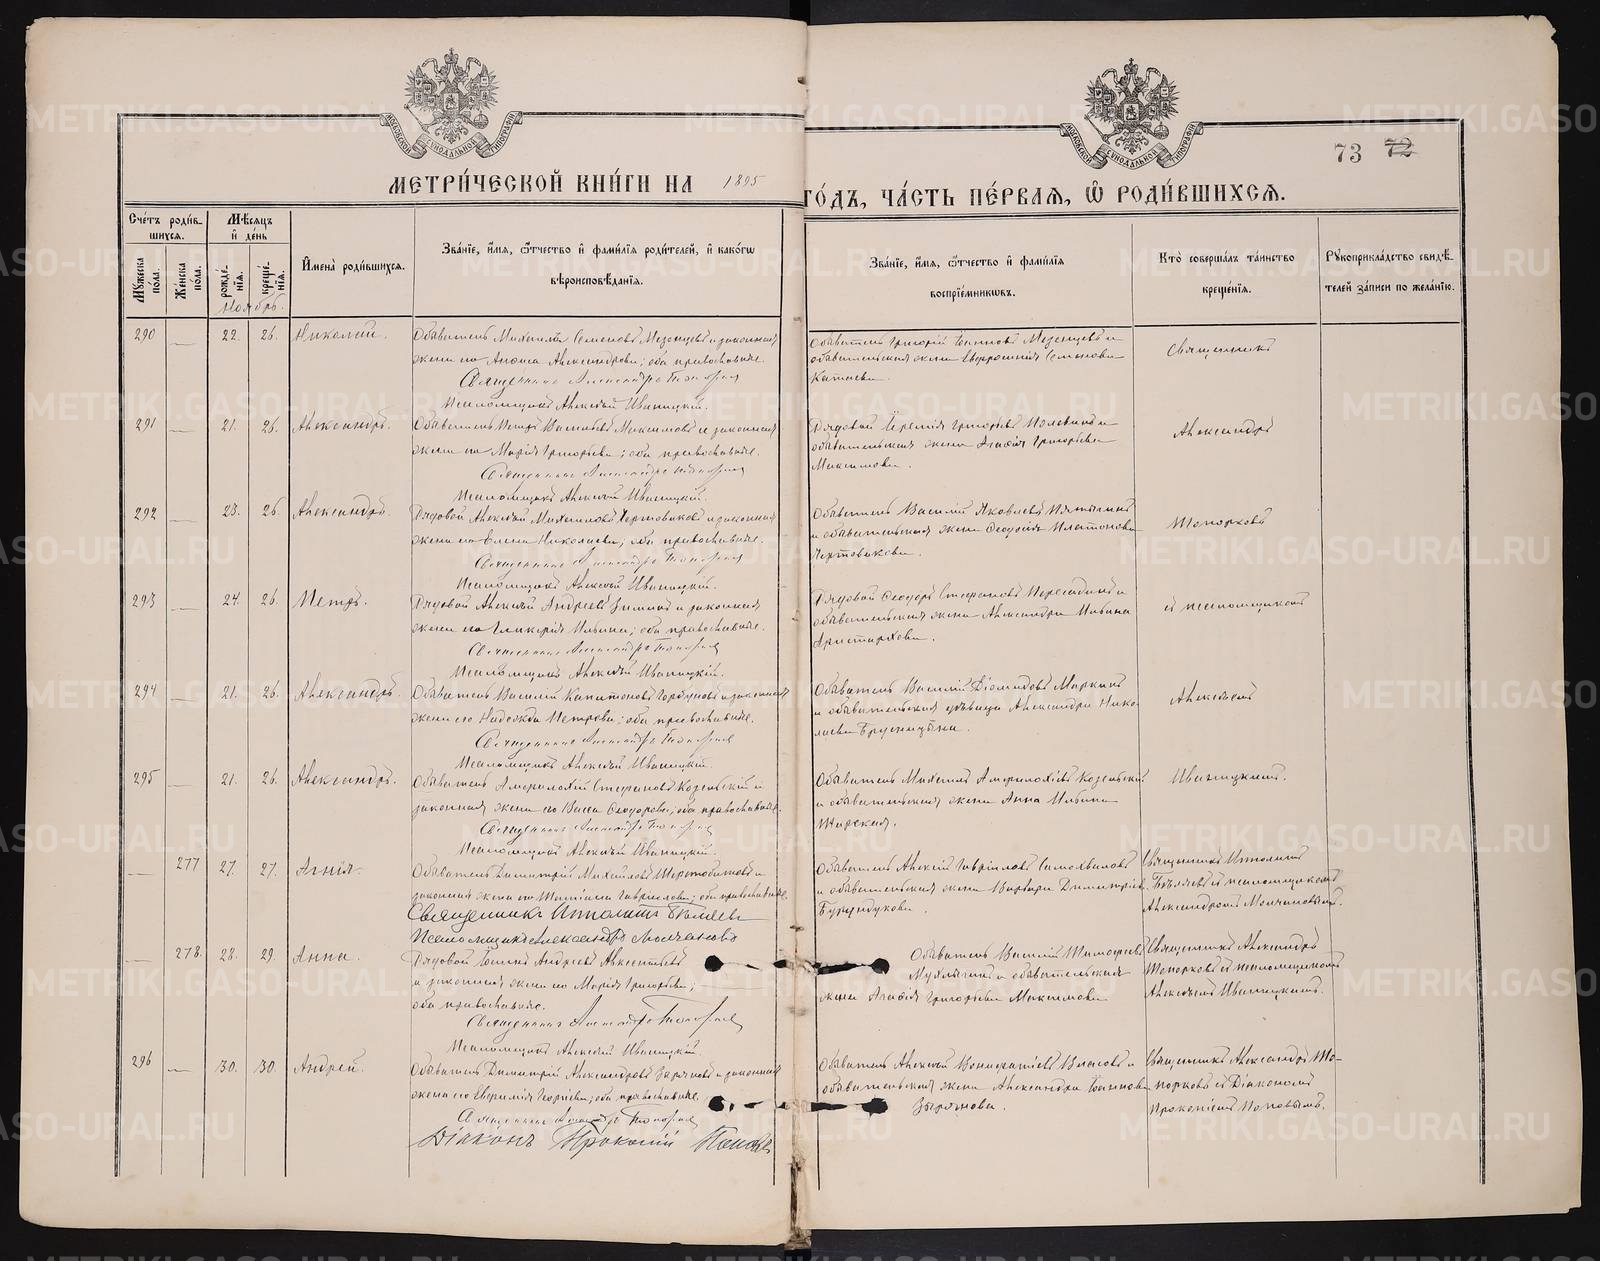 МЕТРИ́ЧЕСКОЙ КНИ́ГИ НА 1895 ГО́ДЪ, ЧА́СТЬ ПЕ́РВАЯ, Ѽ РОДИ́ВШИХСѦ.
73 72
МОСКОВСКОЙ СУНОДАЛЬНОЙ ТИПОГРАФІИ
МОСКОВСКОЙ СУНОДАЛЬНОЙ ТИПОГРАФІИ
Сче́тъ роди́в-
шихсѧ.
Мѣ́сѧцъ
и҆ де́нь
Мꙋ́жеска по́ла.
Же́нска по́ла.
рожде́-
нїѧ.
креще́-
нїѧ.
Ноябрь.
И҆мена̀ роди́вшихсѧ.
Зва́нїе, и҆́мѧ, ѻ҆́тчество и҆ фами́лїѧ роди́телей, и҆ како́гѡ
вѣроисповѣ́данїѧ.
Зва́нїе, и҆́мѧ, ѻ҆́тчество и҆ фами́лїѧ
воспрїе́мникѡвъ.
Кто̀ соверша́лъ та́инство
креще́нїѧ.
Рꙋкоприкла́дство свидѣ́-
телей за́писи по жела́нїю.
290 — 22. 26. Николай.
Обыватель Михаилъ Семеновъ Мезенцевъ и законная
жена его Анфиса Александрова; оба православные.
Священникъ Александръ Топорковъ
Псаломщикъ Алексѣй Иваницкій.
Обыватель Григорій Іоанновъ Мезенцевъ и
обывательская жена Евфросинія Семенова
Катаева.
Священникъ
291 — 21. 26. Александръ.
Обыватель Петръ Васильевъ Максимовъ и законная
жена его Марія Григорьева; оба православные.
Священникъ Александръ Топорковъ
Псаломщикъ Алексѣй Иваницкій.
Рядовой Іеремія Григорьевъ Половинъ и
обывательская жена Агафія Григорьева
Максимова.
Александръ
292 — 23. 26. Александръ.
Рядовой Алексѣй Михаиловъ Чертовиковъ и законная
жена его Елена Николаева; оба православные.
Священникъ Александръ Топорковъ
Псаломщикъ Алексѣй Иваницкій.
Обыватель Василій Яковлевъ
и обывательская жена Ѳеодосія Платонова
Чертовикова.
Топорковъ
293 — 24. 26. Петръ.
Рядовой Алексѣй Андреевъ Зиминъ и законная
жена его Гликерія Ильина; оба православные.
Священникъ Александръ Топорковъ
Псаломщикъ Алексѣй Иваницкій.
Рядовой Ѳеодоръ Стефановъ и
обывательская жена Александра Ильина
Аристархова.
съ псаломщикомъ
294 — 21. 26. Александръ.
Обыватель Василій Капитоновъ Горбуновъ и законная
жена его Надежда Петрова; оба православные.
Священникъ Александръ Топорковъ
Псаломщикъ Алексѣй Иваницкій.
Обыватель Василій Діомидовъ Маркинъ
и обывательская дѣвица Александра Нико-
лаева Брусницына.
Алексѣемъ
295 — 21. 26. Александръ.
Обыватель Амфилохій Стефановъ и
законная жена его Васса Ѳеодорова; оба православные.
Священникъ Александръ Топорковъ
Псаломщикъ Алексѣй Иваницкій.
Обыватель Михаилъ Амфилохіевъ
и обывательская жена Анна Ильина
Ширская.
Иваницкимъ.
— 277 27. 27. Агнія.
Обыватель Димитрій Михаиловъ Шерстобитовъ и
законная жена его Татіана Гавриилова; оба православные.
Священникъ Ипполитъ Бѣляевъ
Псаломщикъ Александръ Молчановъ
Обыватель Алексій Гавріиловъ Самохваловъ
и обывательская жена Варвара Димитріева
Бурундукова.
Священникъ Ипполитъ
Бѣляевъ съ псаломщикомъ
Александромъ Молчановымъ.
— 278. 28. 29. Анна.
Рядовой Іоаннъ Андреевъ Авксентьевъ
и законная жена его Марія Григорьева;
оба православные.
Священникъ Александръ Топорковъ
Псаломщикъ Алексѣй Иваницкій.
Обыватель Василій Тимофеевъ
Мухлынинъ и обывательская
жена Агафія Григорьева Максимова
Священникъ Александръ
Топорковъ съ псаломщикомъ
Алексѣемъ Иваницкимъ.
296 — 30. 30. Андрей.
Обыватель Димитрій Александровъ Зыряновъ и законная
жена его Евфимія Георгіева; оба православные.
Священникъ Александръ Топорковъ
Діаконъ Прокопій Поповъ
Обыватель Алексѣй Вонифатіевъ Власовъ и
обывательская жена Александра Іоаннова
Зырянова.
Священникъ Александръ То-
порковъ съ Діакономъ
Прокопіемъ Поповымъ.
METRIKI.GASO-URAL.RU